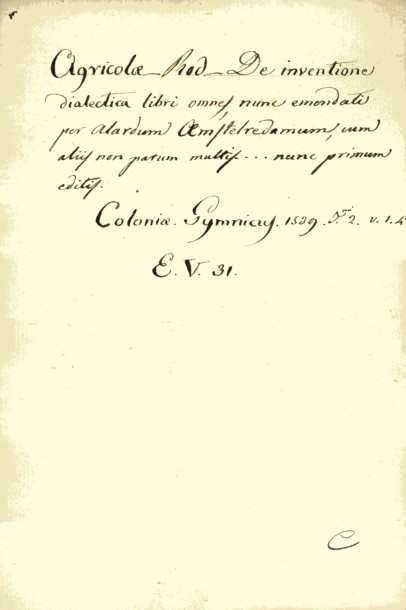 Agricolæ Rod De inventione
dialectica libri omnes nunc emendati
per Alardum Æmstelredamum, cum
aliis non parum multis... nunc primum
editis.
Coloniæ. Gymnicus. 1539. Tri 2. v. 1. 4
E. V. 31.
C